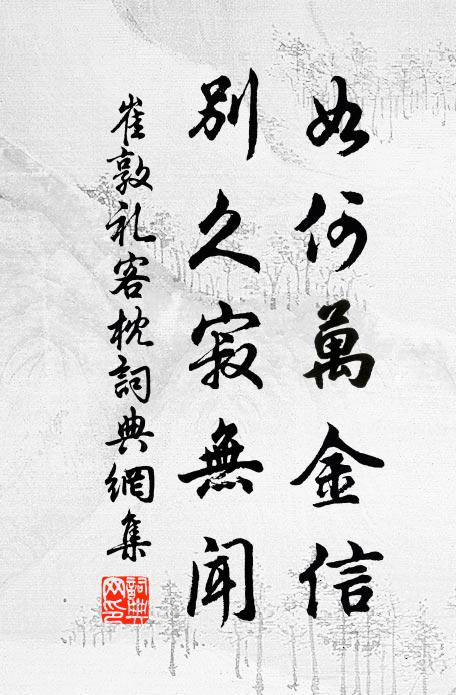 如何萬金信
別久寂無聞
崔敦礼客枕詞典網集
詞典
网印